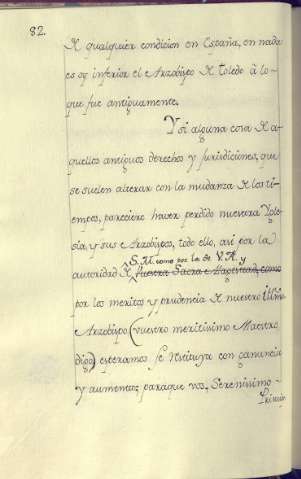 82.
de qualquier condicion en España, en nada
es oy inferior el Arzobispo de Toledo à lo
que fue antiguamente.
Y si alguna cosa de a-
quellos antiguos derechos y jurisdiciones, que
se suelen alterar con la mudanza de los ti-
empos, pareciere haver perdido nuestra Ygle-
sia, y sus Arzobispos, todo ello, asi por la
S. M. como por la de V. A. y
autoridad de vuestra Sacra Magestad, como
por los meritos y prudencia de nuestro Illmo
Arzobispo (vuestro meritisimo Maestro
digo) esperamos se restituya con ganancia
y aumentos; paraque vos, Serenisimo
Princi-